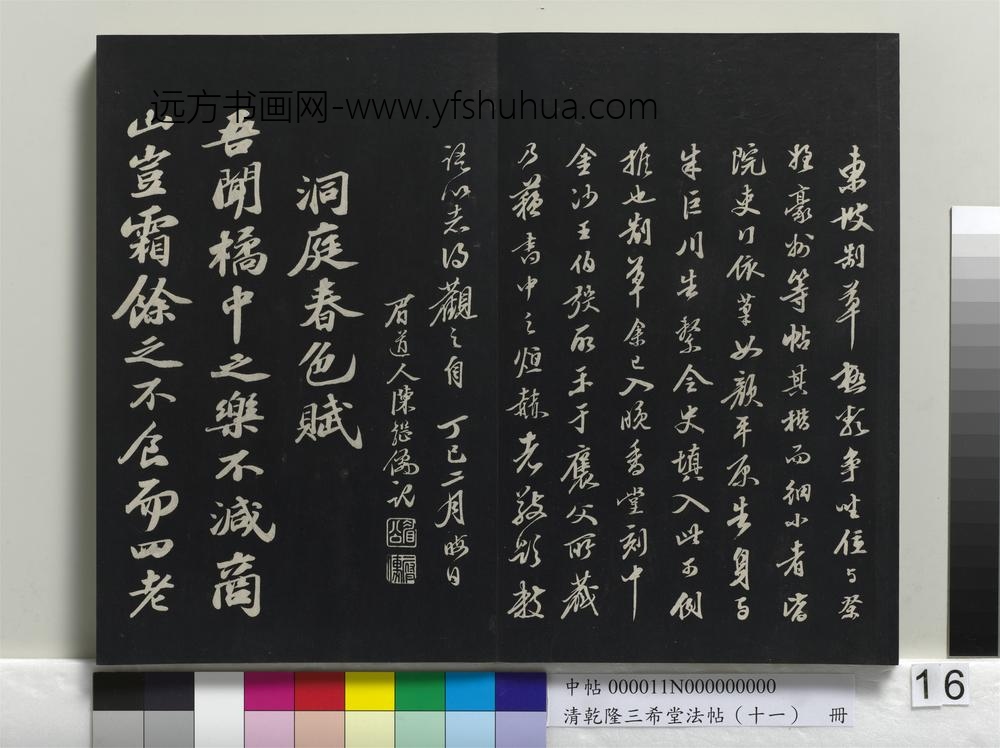 远方书画网-www.yfshuhua.com
東坡制草極類争坐位与祭
姪豪州等帖其楷而細小者皆
院吏行依草如顔平原告身与
朱巨川告繫令史填入此不例
推也制草余已入晚香堂刻中
金沙王伯弢所示于褒父所藏
乃蘇書中之烜赫者敬題数
語以志得觀之自丁巳二月晦日
眉道人陳繼儒記
洞庭春色賦
吾聞橘中之樂不減商
山豈霜餘之不食而四老
中帖 000011N000000000
清乾隆三希堂法帖（十一） 冊
16